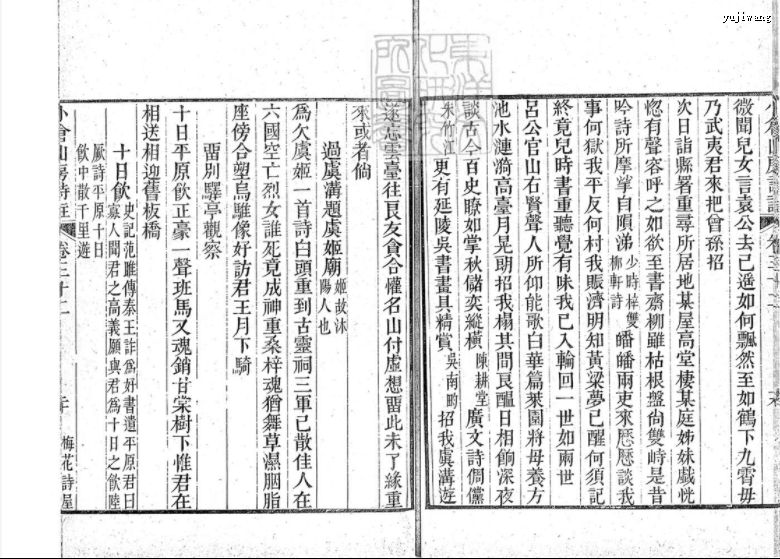 yujiwang
微聞兒女言袁公去已遥如何飄然至如鶴下九霄毋
乃武夷君來把曾孫招
次日詣縣署重尋所居地某屋高堂棲某庭姊妹戲恍
惚有聲容呼之如欲至書齋柳雖枯根盤尙雙峙是昔
吟詩所摩挲自頃涕少時梓雙柳軒詩皤皤兩吏來歷歷談我
事何獄我平反何村我賑濟明知黃粱夢已醒何須記
終竟兒時書重聽覺有味我已入輪回一世如兩世
呂公官山右賢聲人所仰能歌白華篇萊園將母養方
池水漣漪高臺月晃朗招我榻其間艮醞日相餉深夜
談古今百史瞭如掌秋儲奕縱橫陳耕堂廣文詩倜儻
朱竹江更有延陵吳書畫具精賞吳南畇招我虞溝遊
遂忘雲臺往艮友貪合懽名山付虛想畱此未了緣重
來或者倘
過虞溝題虞姬廟姬故沭陽人也
爲欠虞姬一首詩白頭重到古靈祠三軍已散佳人在
六國空亡烈女誰死竟成神重桑梓魂猶舞草濕胭脂
座傍合塑烏騅像好訪君王月下騎
畱別驛亭觀察
十日平原飮正豪一聲班馬又魂銷甘棠樹下惟君在
相送相迎舊板橋
十日飮史記范雎傳秦王詐爲好書遺平原君曰
寡人聞君之高義願與君爲十日之飮陸
厥詩平原十日
飮中散千里遊
小倉山房詩註
卷三十二
梅花詩屋